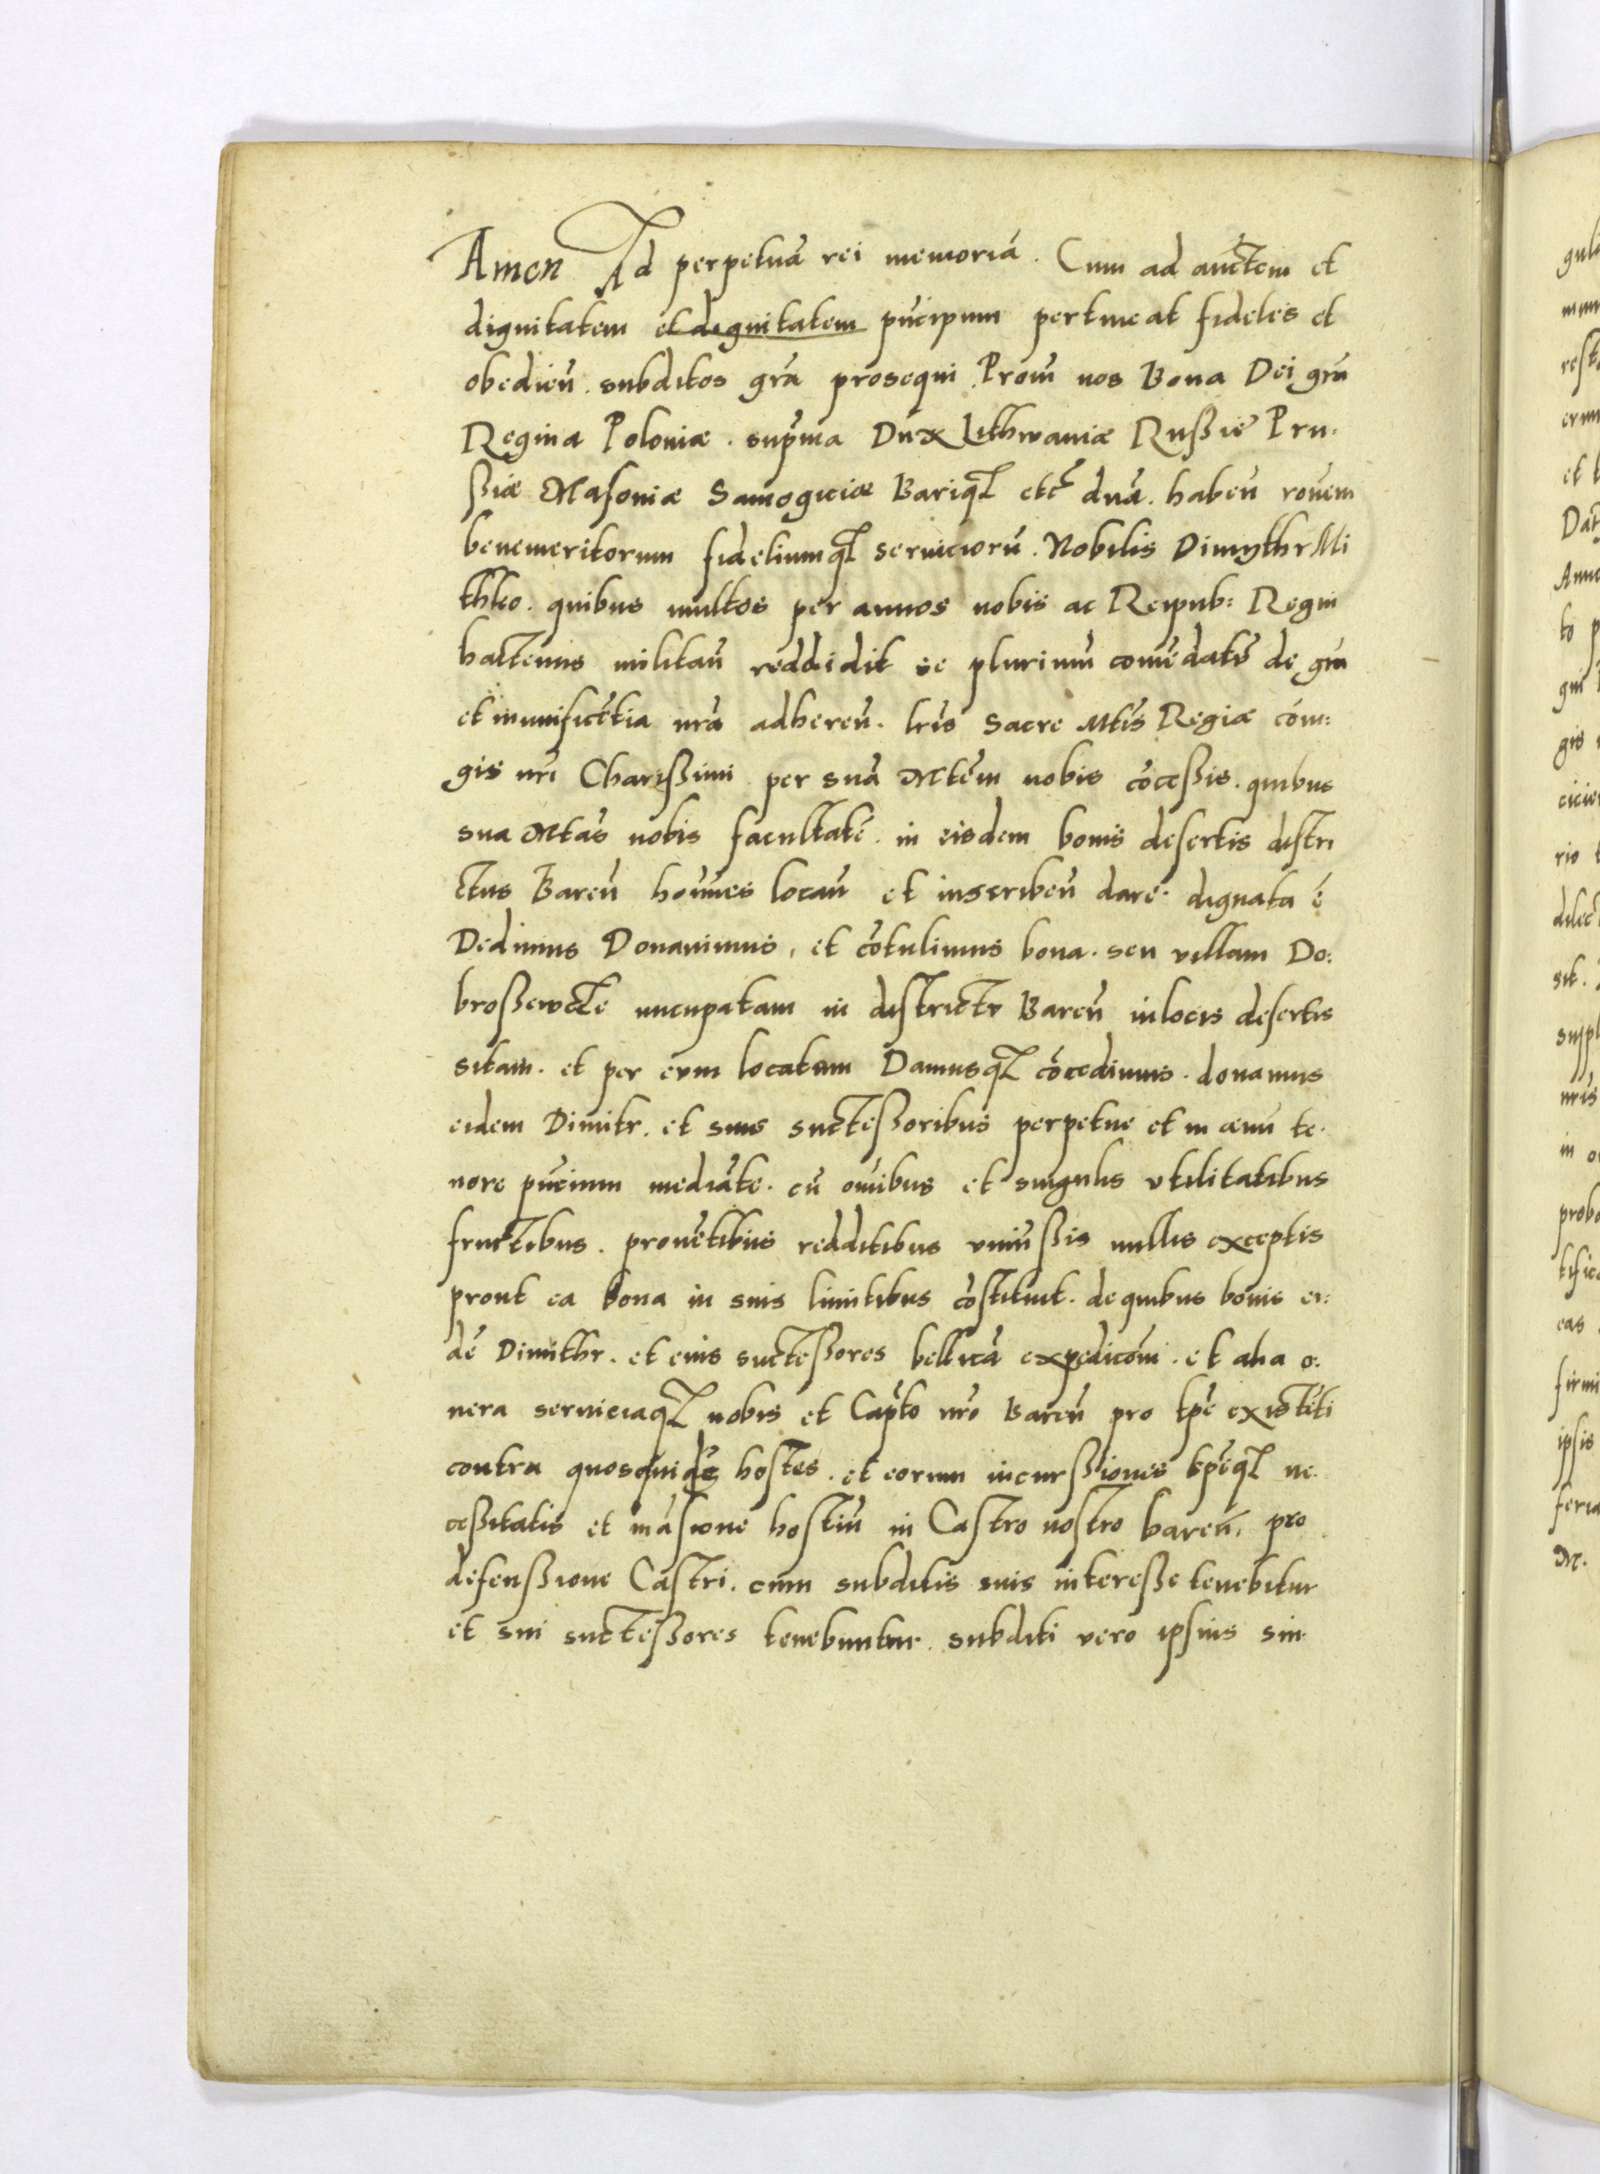 Amen Ad perpetuā rei memoriā. Cum ad auctem et
dignitatem et dignitatem pūcipum pertineat fideles et
obedieñ. subditos grā prosequi. Proiñ nos Bona Dei grā
Regina Poloniæ. sup̃ma Dux Lithwaniæ Rußie Pru.
ßiæ Masoniæ Samogiciæ Bariq etc dnā. habeñ roñem
benemeritorum fideliumq seruiciorū. Nobilis Dimythr Mi
thko. quibus multos per annos nobis ac Reipub: Regni
hactenus militañ reddidit se plurimū comēdatū de grā
et munificētia nrā adhereñ. lris Sacre Mtis Regiæ cōiu:
gis nri Charißimi per suā Mtem nobis cōceßis. quibus
sua Mtas nobis facultatē. in eisdem bonis desertis distri
ctus Bareñ hoñies locañ et inscribeñ dare. dignata ē
Dedimus Donauimus, et cōtulimus bona. seu villam Do:
broßewcze nucupatam in districtu Bareñ in locis desertis
sitam. et per eum locatam Damusq cōcedimus. donamus
eidem Dimitr. et suis succeßoribus perpetue et in æuū te.
nore pūcium mediāte. cū oñibus et singulis vtilitatibus
fructibus. prouētibus redditibus vniūßis nullis exceptis
prout ea bona in suis limitibus cōstituit. de quibus bonis ei:
dē Dimithr. et eius succeßores bellicā expedicōni. et alia o:
nera seruiciaq nobis et Capto nro Bareñ pro tpe existēti
contra quosquidē hostes. et eorum incurßiones tpeq ne.
ceßitatis et māsione hostiū in Castro nostro bareñ, pro
defenßione Castri. cum subditis suis intereße tenebitur
et sui succeßores tenebuntur. subditi vero ipsius sin